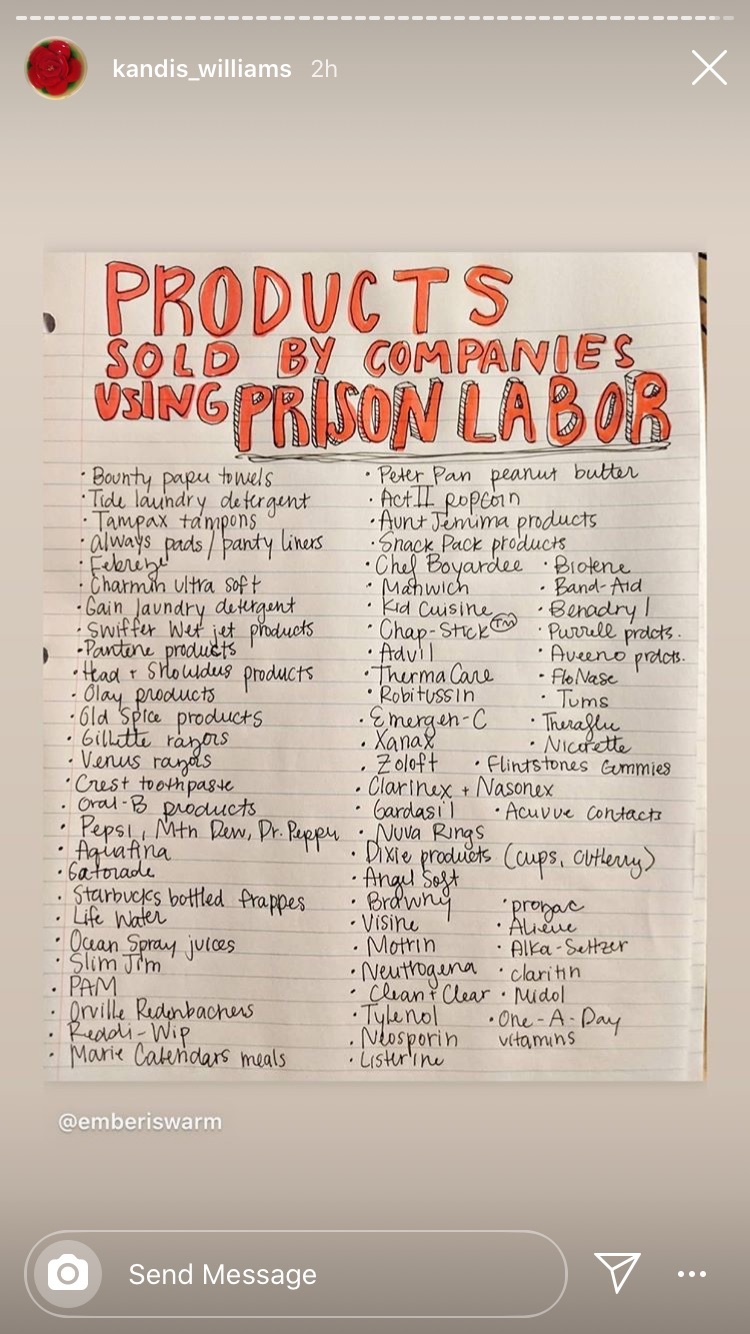 kandis_williams 2h
PRODUCTS
SOLD BY COMPANIES
USING PRISON LABOR
· Bounty paper towels
· Tide laundry detergent
· Tampax tampons
· Always pads / panty liners
· Febreze
· Charmin Ultra soft
· Gain laundry detergent
· Swiffer Wet jet products
· Pantene products
· Head + Shoulders products
· Olay products
· Old Spice products
· Gillette razors
· Venus razors
· Crest toothpaste
· Oral-B products
· Pepsi, Mtn Dew, Dr. Pepper
· Aquafina
· Gatorade
· Starbucks bottled frappes
· Life Water
· Ocean Spray juices
· Slim Jim
· PAM
· Orville Redenbachers
· Reddi-Wip
· Marie Calendars meals
· Peter Pan peanut butter
· Act II popcorn
· Aunt Jemima products
· Snack Pack products
· Chef Boyardee
· Manwich
· Kid Cuisine
· Chap-Stick TM
· Advil
· ThermaCare
· Robitussin
· Emergen-C
· Xanax
· Zoloft
· Clarinex + Nasonex
· Gardasil
· Nuva Rings
· Dixie products (cups, cutlerry)
· Angel Soft
· Brawny
· Visine
· Motrin
· Neutrogena
· Clean + Clear
· Tylenol
· Neosporin
· Listerine
· Biotene
· Band-Aid
· Benadryl
· Purrell prdcts.
· Aveeno prdcts.
· FloNase
· Tums
· Theraflu
· Nicorette
· Flintstones Gummies
· Acuvue contacts
· prozac
· Alieve
· Alka-Seltzer
· claritin
· Midol
· One-A-Day
vitamins
@emberiswarm
Send Message